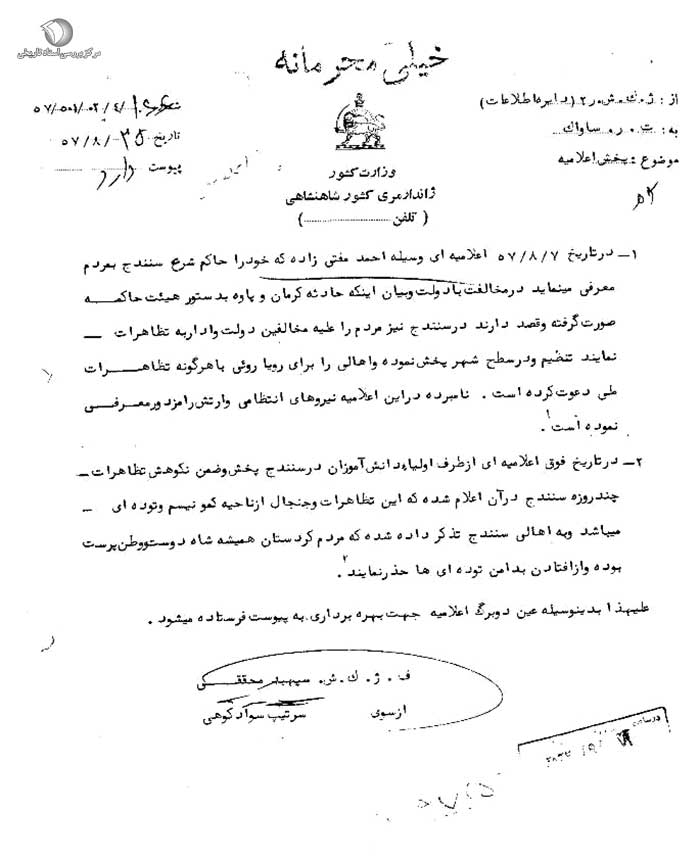 مرکز بررسی اسناد تاریخی
خیلی محرمانه
از : ژ . ک . ش . ر۲ ( دایره اطلاعات )
به : ت . ر . ساواک
موضوع : پخش اعلامیه
وزارت کشور
ژاندارمری کشور شاهنشاهی
( تلفن ........................ )
شماره
تاریخ ۵۷/۸/۲۵
پیوست دارد
۱ـ درتاریخ ۵۷/۸/۷ اعلامیه ای وسیله احمد مفتی زاده که خودرا حاکم شرع سنندج بمردم
معرفی مینماید درمخالفت بادولت وبیان اینکه حادثه کرمان و پاوه بدستور هیئت حاکمــه
صورت گرفته وقصد دارند درسنندج نیز مردم را علیه مخالفین دولت وادار به تظاهرات ــ
نمایند تنظیم ودرسطح شهر پخش نموده واهالی را برای رویا روئی باهرگونه تظاهـــرات
ملی دعوت کرده است . نامبرده دراین اعلامیه نیروهای انتظامی وارتش رامزدورمعـرفــی
نموده است ۱.
۲ـ درتاریخ فوق اعلامیه ای ازطرف اولیاء دانش آموزان درسنندج پخش وضمن نکوهش تظاهرات ــ
چندروزه سنندج درآن اعلام شده که این تظاهرات وجنجال ازناحیه کمونیسم وتوده ای ــ
میباشد وبه اهالی سنندج تذکر داده شده که مردم کردستان همیشه شاه دوست ووطن پرست
بوده وازافتادن بدامن توده ای ها حذرنمایند ۲.
علیهذا بدینوسیله عین دوبرگ اعلامیه جهت بهره برداری به پیوست فرستاده میشود .
ف . ژ . ک . ش . سپهبد محققــی
ازسوی سرتیپ سوادکوهی